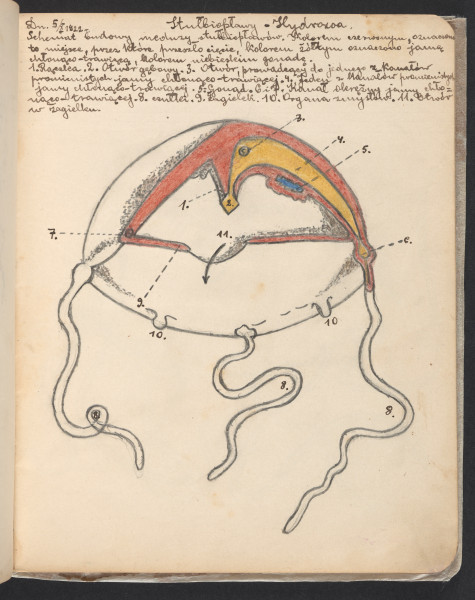 Dn. 5/X 1922.
Stułbiopławy - Hydrozoa.
Schemat budowy meduzy stułbiopławów. Kolorem czerwonym, oznaczono
to miejsce, przez które przeszło cięcie, kolorem żółtym oznaczono jamę
chłonąco-trawiącą, kolorem niebieskim gonadę.
1. Rączka. 2. Otwór gębowy. 3. Otwór, prowadzący do jednego z kanałów
promienistych jamy chłonąco-trawiącej. 4. Jeden z kanałów promienistych
jamy chłonąco-trawiącej. 5. Gonad. 6. i 7. Kanał okrężny jamy chło-
nąco-trawiącej. 8. czułki. 9. Żagielek. 10. Organa zmysłów. 11. Otwór
w żagielku.
3.
4.
5.
1.
2.
7.
11.
6.
9.
10.
10
8.
8.
8